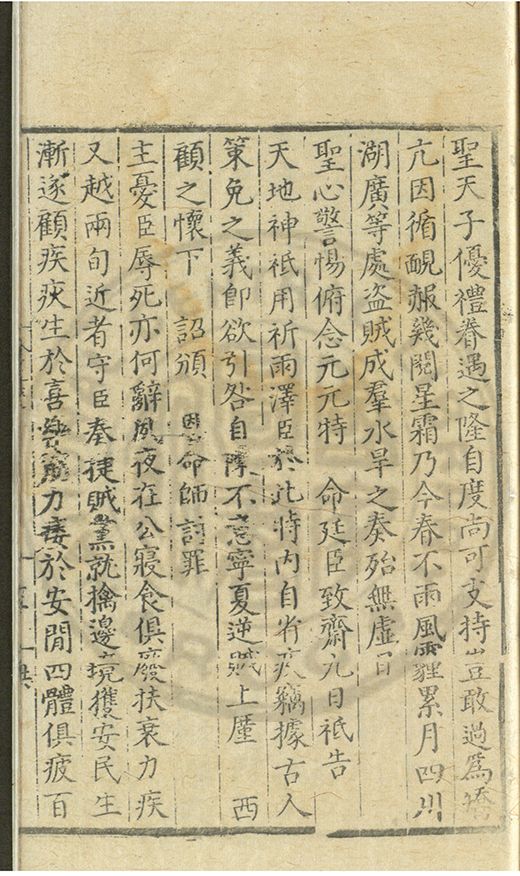 聖天子優禮眷遇之隆自度尚可支持豈敢過爲矯
亢因循靦赧幾閱星霜乃今春不雨風霾累月四川
湖廣等處盗賊成羣水旱之奏殆無虛日
聖心警惕俯念元元特 命廷臣致齋九日祗告
天地神祇用祈雨澤臣於此特内自省疚竊據古人
策免之義卽欲引咎自陳不意寧夏逆賊上廑 西
顧之懷下 詔頒 恩命師討罪
主憂臣辱死亦何辭夙夜在公寢食俱廢扶衰力疾
又越兩旬近者守臣奏捷賊黨就擒邊境獲安民生
漸遂顧疾疢生於喜樂筋力痿於安閒四體俱疲百